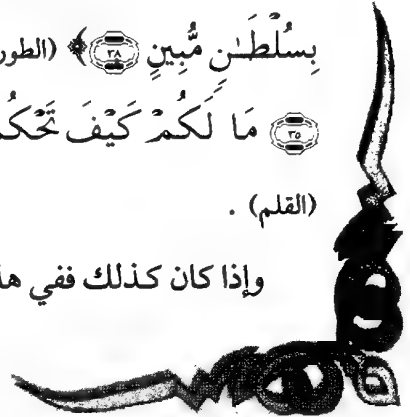 بِسُلْطَـٰنٍ مُّبِينٍ ۝٣٨ ﴾ (الطور
۝٣٥ مَا لَكُمْ كَيْفَ تَحْكُمُ
(القلم) .
وإذا كان كذلك ففي هذ